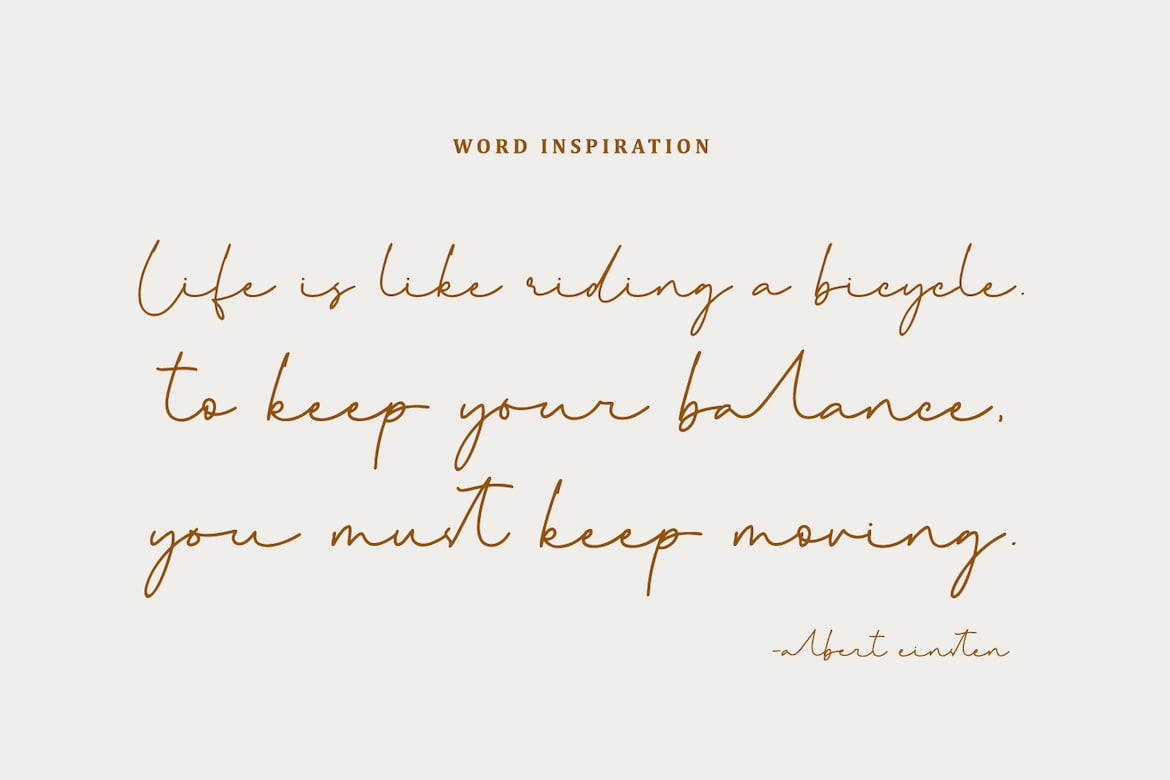 WORD INSPIRATION
Life is like riding a bicycle.
to keep your balance,
you must keep moving.
-albert einsten